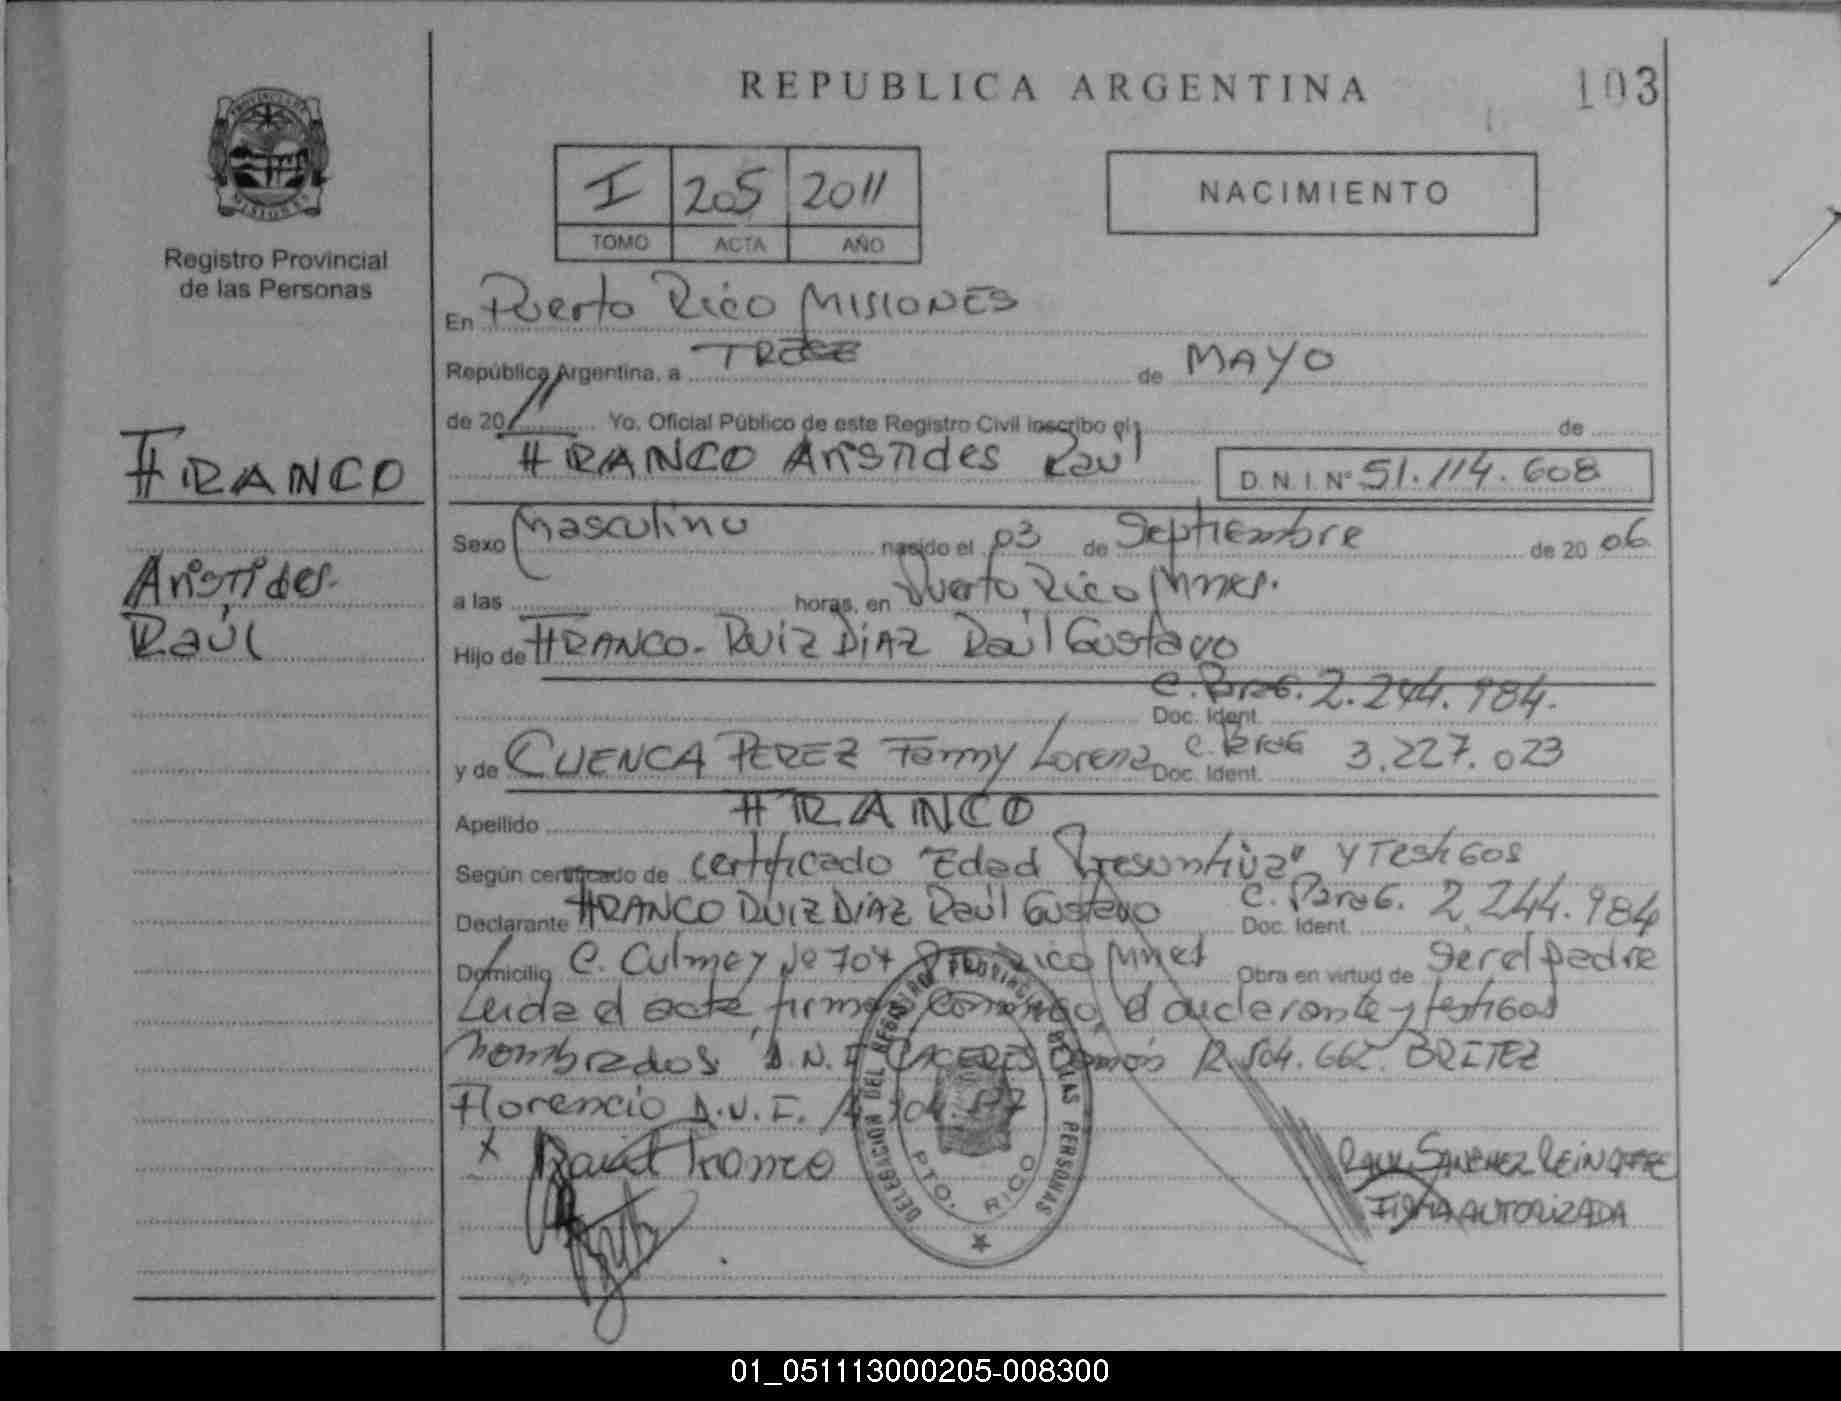 REPUBLICA ARGENTINA
103
PROVINCIA DE MISIONES
Registro Provincial
de las Personas
I 205 2011
TOMO ACTA AÑO
NACIMIENTO
En Puerto Rico MISIONES
República Argentina, a TRECE de MAYO
de 2011 Yo. Oficial Público de este Registro Civil inscribo el de
FRANCO Aristides Raul D.N.I. Nº 51.114.608
FRANCO
Aristides
Raúl
Sexo Masculino nacido el 03 de Septiembre de 20 06
a las horas, en Puerto Rico Mnes.
Hijo de FRANCO-RUIZ DIAZ Raúl Gustavo
C. Parag. 2.244.984.
Doc. Ident.
y de CUENCA PEREZ Fanny Lorena Doc. Ident. C. Parag 3.227.023
Apellido FRANCO
Según certificado de Certificado "Edad Presuntiva" y Testigos
Declarante FRANCO RUIZ DIAZ Raúl Gustavo Doc. Ident. C. Parag. 2.244.984
Domicilio C. Culmey Nº 704 Rico Mnes Obra en virtud de ser el padre
Leida el acta, firman conmigo, el declarante y testigos
nombrados D.N.I. CACERES Ramón BRITEZ
Florencio D.N.I.
X Raul Franco
DELEGACION DEL REGISTRO PROVINCIAL DE LAS PERSONAS
PTO. RICO
RAUL SANCHEZ
FIRMA AUTORIZADA
01_051113000205-008300